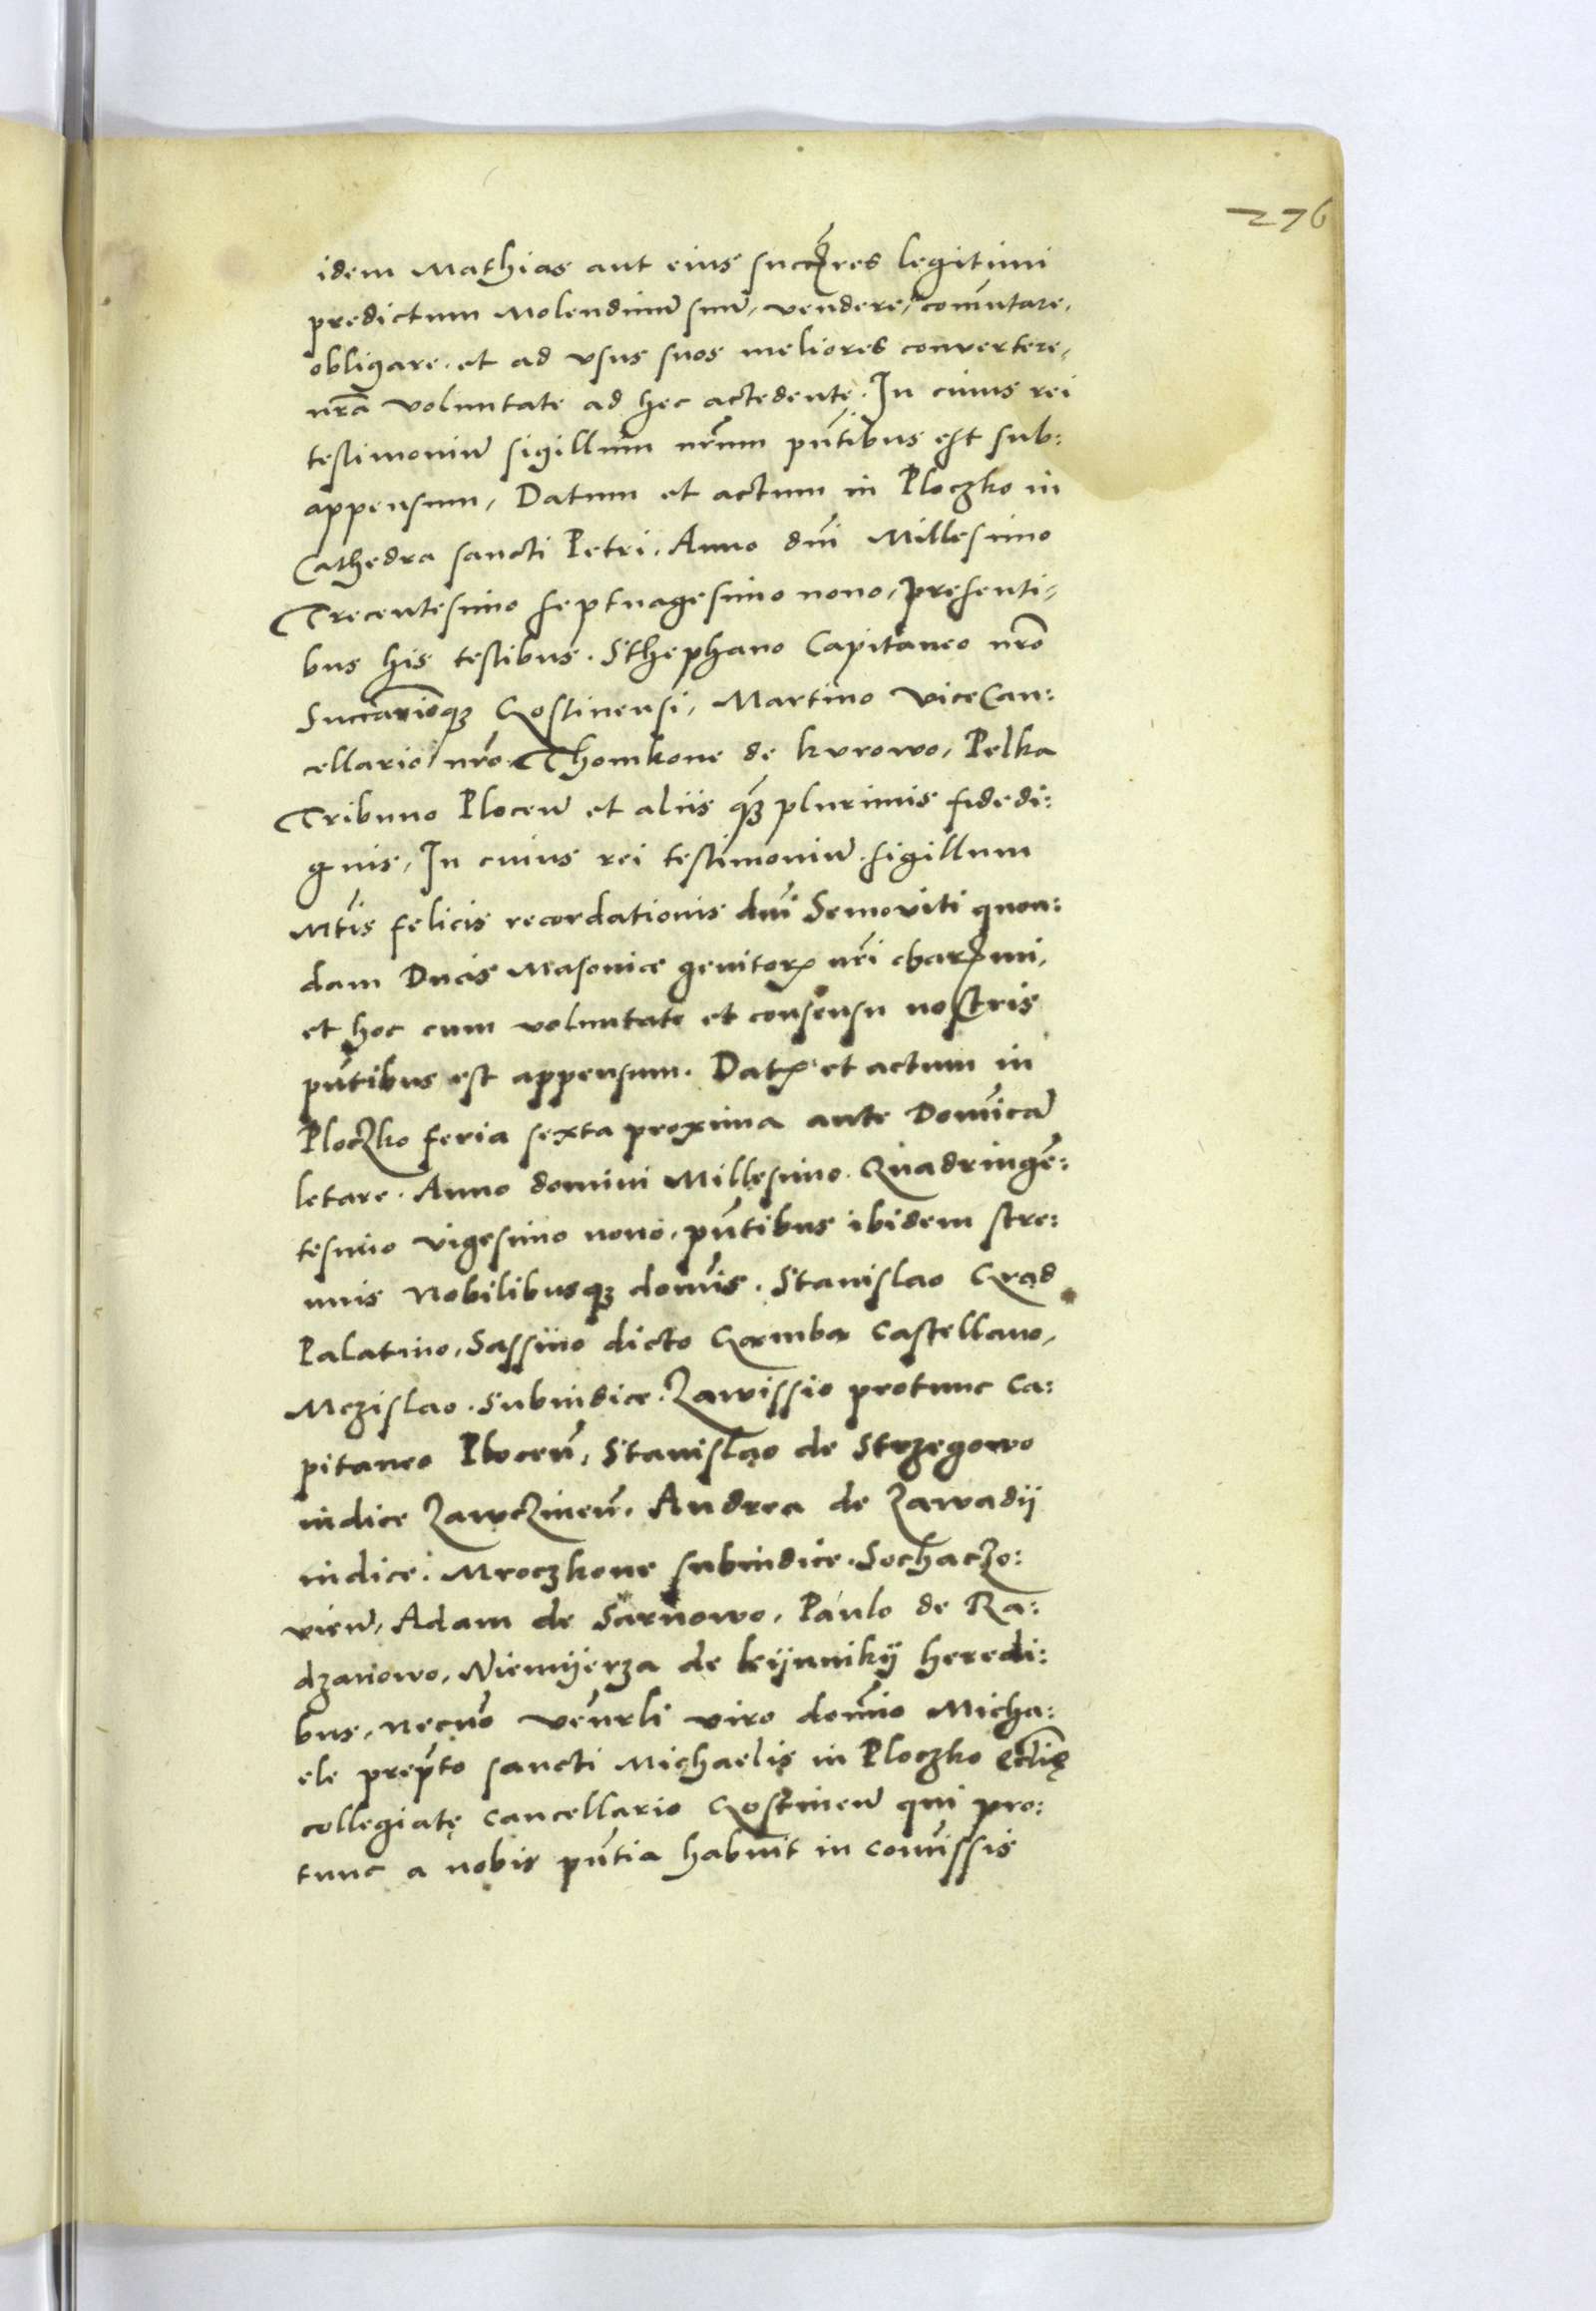 276
idem Mathias aut eius succr̃es legitimi
predictum Molendinũ suũ, vendere, com̃utare,
obligare. et ad vsus suos meliores convertere,
nrã voluntate ad hec actedente. In cuius rei
testimoniũ sigillum nrũm pñtibus est sub:
appensum, Datum et actum in Ploczko in
Cathedra sancti Petri. Anno dñi Millesimo
Trecentesimo septuagesimo nono, presenti-
bus his testibus. Sthephano Capitaneo nrõ
Gostinensi, Martino ViceCan:
cellario nrõ. Thomkone de kurowo, Pelka
Tribuno Plocen̄ et aliis qȝ plurimis fidedi:
gnis, In cuius rei testimoniũ sigillum
Mtĩs felicis recordationis dñi Semoviti quon:
dam Ducis Masovice genitorꝭ nrĩ charmi,
et hoc cum voluntate et consensu nostris
pñtibus est appensum. Datꝭ et actum in
Ploczko feria sexta proxima ante Domĩcã
letare. Anno domini Millesimo. Quadringẽ:
tesimo vigesimo nono, pñtibus ibidem stre:
nuis Nobilibusqȝ domĩs. Stanislao Grad
Palatino, Sassino dicto Gamba Castellano,
Mczislao. Subiudice. Zawissio protunc Ca:
pitaneo Plocen̄, Stanislao de Strzegowo
iudice Zawczinen̄. Andrea de Zawadÿ
iudice. Mroczkone subiudice. Sochaczo:
vien̄, Adam de Sarnowo, Paulo de Ra:
dzanowo, Niemÿerza de leÿnnikÿ heredi:
bus, necnõ veñrli viro domĩo Micha:
ele prepto sancti Michaelis in Ploczko ecclĩę
collegiatę cancellario Gostinen̄ qui pro:
tunc a nobis pñtia habuit in com̃issis